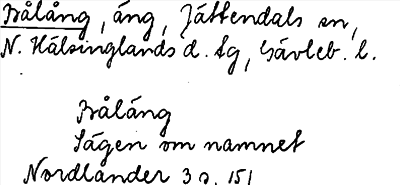 Bålång, äng, Jättendals sn,
N. Hälsinglands d. sg, Gävleb. l.
Bålång
Sägen om namnet
Nordlander 3 s. 151